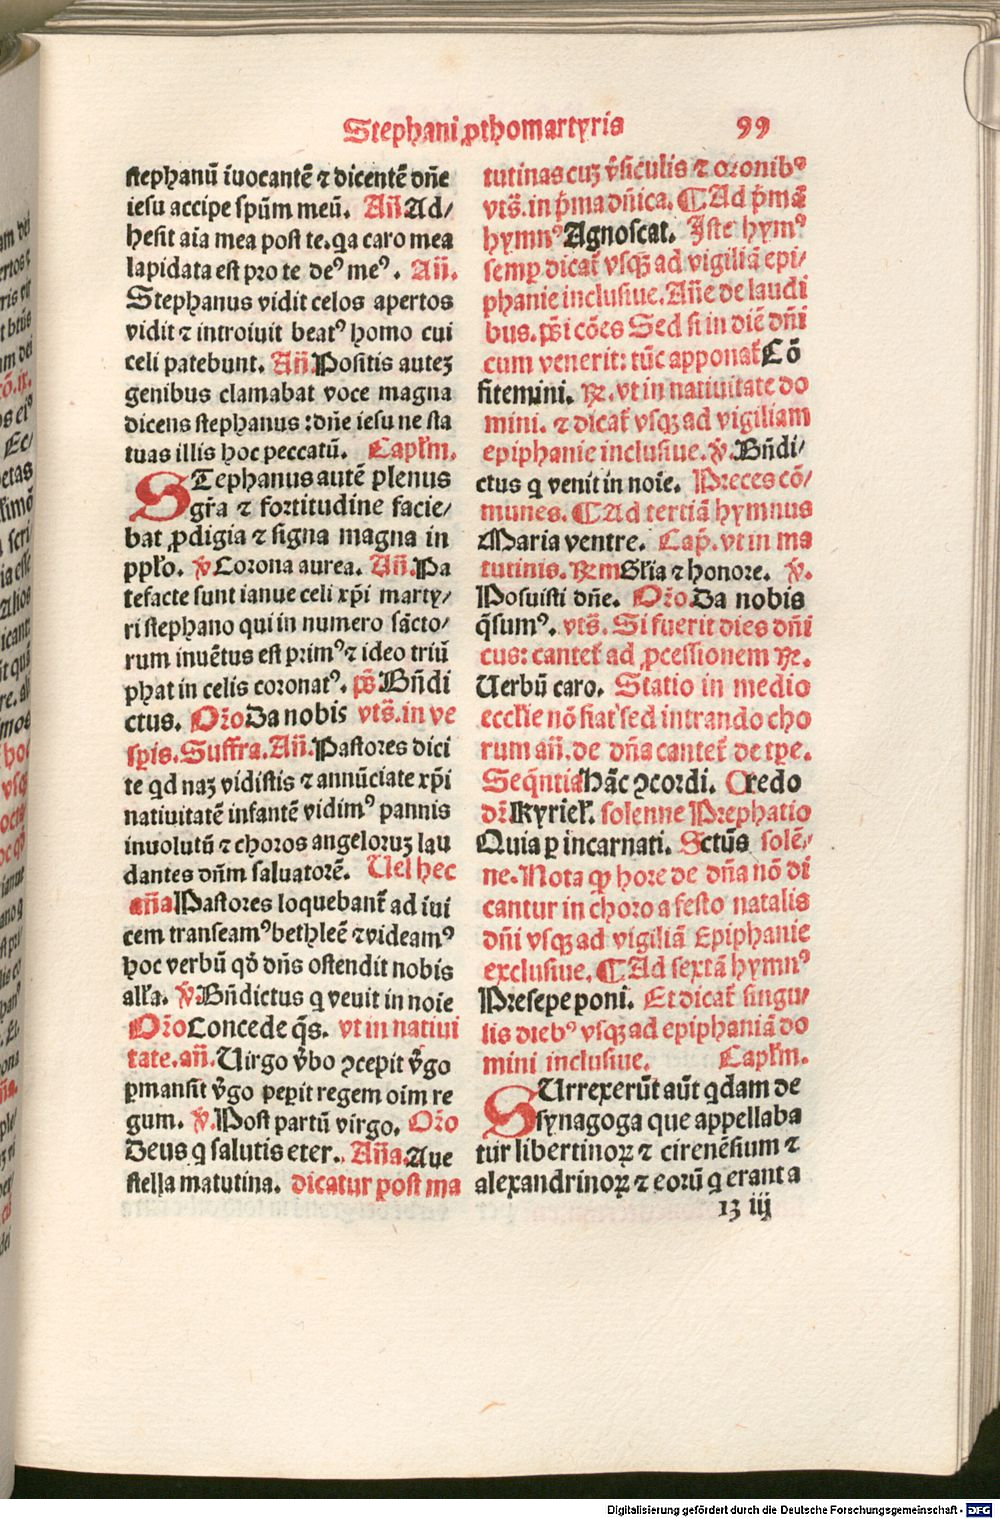 Stephani ꝓthomartyris 99
stephanū īuocantē ⁊ dicentē dn̄e
iesu accipe spūm meū. An̄. Ad/
hesit aīa mea post te. qa caro mea
lapidata est pro te deꝰ meꝰ. An̄.
Stephanus vidit celos apertos
vidit ⁊ introiuit beatꝰ homo cui
celi patebunt. An̄. Positis autez
genibus clamabat voce magna
dicens stephanus : dn̄e iesu ne sta
tuas illis hoc peccatū. Capłm.
STephanus autē plenus
gr̄a ⁊ fortitudine facie/
bat ꝓdigia ⁊ signa magna in
ppło. v̄ Corona aurea. An̄. Pa
tefacte sunt ianue celi xp̄i marty/
ri stephano qui in numero sācto/
rum inuētus est primꝰ ⁊ ideo triū
phat in celis coronatꝰ. ps̄ Bn̄di
ctus. Or̄o Da nobis vts̄. in ve
spis. Suffra. An̄. Pastores dici
te qd naz vidistis ⁊ annūciate xp̄i
natiuitatē infantē vidimꝰ pannis
inuolutū ⁊ choros angeloruz lau
dantes dn̄m saluatorē. Uel hec
an̄a Pastores loquebant̄ ad iui
cem transeamꝰ bethleē ⁊ videamꝰ
hoc verbū qd̄ dn̄s ostendit nobis
ałła. v̄. Bn̄dictus q veuit in noie
Or̄o Concede q̄s. vt in natiui
tate. an̄. Uirgo v̄bo ꝯcepit v̄go
ꝑmansit v̄go peꝑit regem oim re
gum. v̄. Post partū virgo. Or̄o
Deus q salutis eter. An̄a. Aue
stella matutina. dicatur post ma
tutinas cuz v̄siculis ⁊ oronibꝰ
vts̄. in p̄ma dn̄ica. ¶ Ad p̄mā
hymnꝰ Agnoscat. Iste hymꝰ
semꝑ dicat̄ vsqꝫ ad vigiliā epi/
phanie inclusiue. An̄e de laudi
bus. ps̄i cōes Sed si in diē dn̄i
cum venerit: tūc apponat̄ Cō
fitemini. ꝶ. vt in natiuitate do
mini. ⁊ dicat̄ vsqꝫ ad vigiliam
epiphanie inclusiue. v̄. Bn̄di/
ctus q venit in noīe. Preces cō/
munes. ¶ Ad tertiā hymnus
Maria ventre. Cap̄. vt in ma
tutinis. ꝶm Głia ⁊ honore. v̄.
Posuisti dn̄e. Or̄o. Da nobis
q̄sumꝰ. vts̄. Si fuerit dies dn̄i
cus: cantet̄ ad ꝓcessionem ꝶ.
Uerbū caro. Statio in medio
eccłie nō fiat sed intrando cho
rum an̄. de dn̄a cantet̄ de tꝑe.
Seq̄ntia Hāc ꝯcordi. Credo
dr̄. Kyrieł. solenne Prephatio
Quia ꝑ incarnati. Sctūs solē/
ne. Nota ꝙ hore de dn̄a nō dī
cantur in choro a festo natalis
dn̄i vsqꝫ ad vigiliā Epiphanie
exclusiue. ¶ Ad sextā hymnꝰ
Presepe poni. Et dicat̄ singu/
lis diebꝰ vsqꝫ ad epiphaniā do
mini inclusiue. Capłm.
SUrrexerūt aūt qdam de
synagoga que appellaba
tur libertinoꝝ ⁊ cirenēsium ⁊
alexandrinoꝝ ⁊ eorū q erant a
13 iij
Digitalisierung gefördert durch die Deutsche Forschungsgemeinschaft - DFG